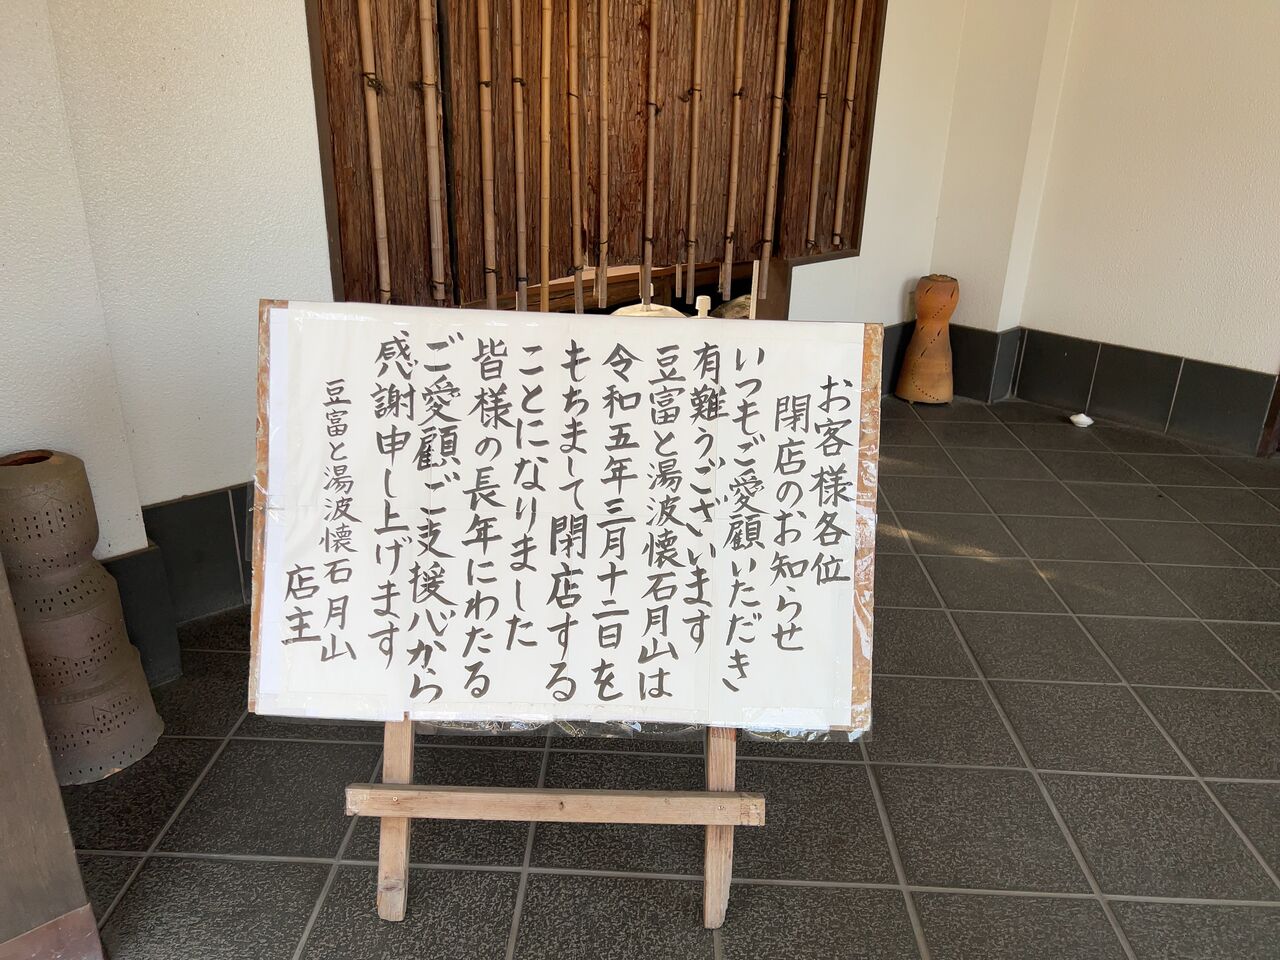 お客様各位
閉店のお知らせ
いつもご愛顧いただき
有難うございます
豆富と湯波懐石月山は
令和五年三月十二日を
もちまして閉店する
ことになりました
皆様の長年にわたる
ご愛顧ご支援心から
感謝申し上げます
豆富と湯波懐石月山
店主